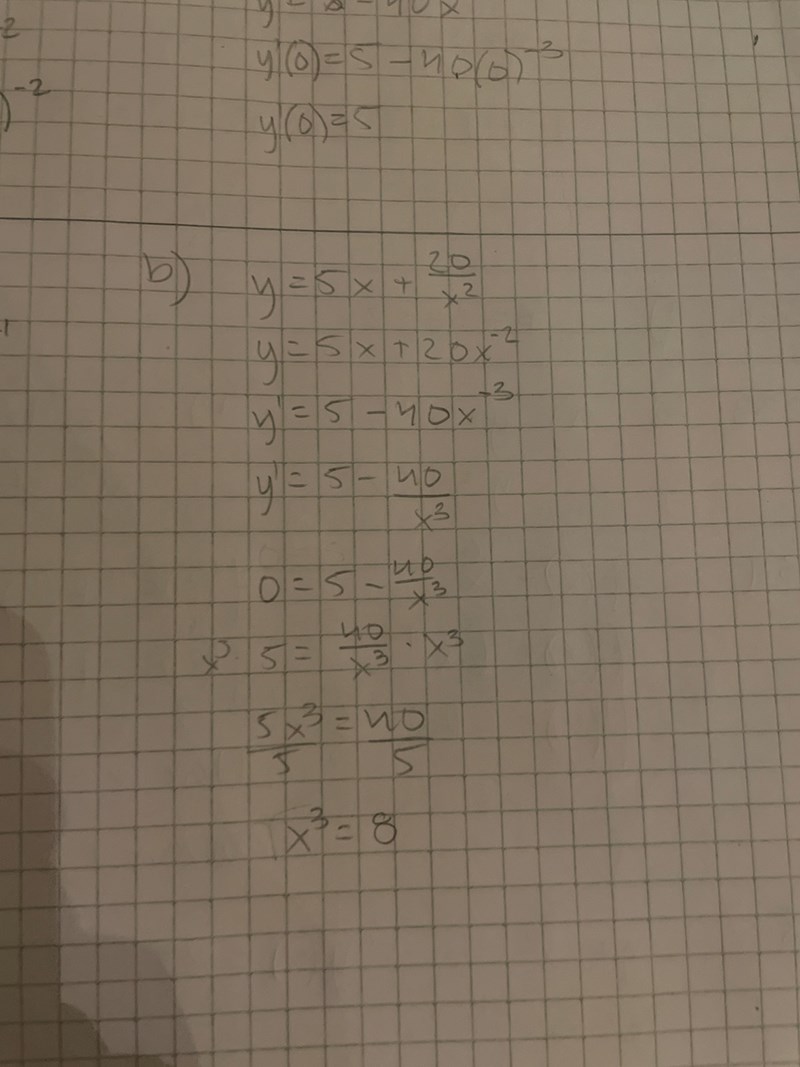 y'(0)=5-40(0)^-3
)^-2
y'(0)=5
b) y=5x+20/x²
y=5x+20x^-2
y'=5-40x^-3
y'=5-40/x³
0=5-40/x³
x³ 5=40/x³·x³
5x³/5=40/5
x³=8